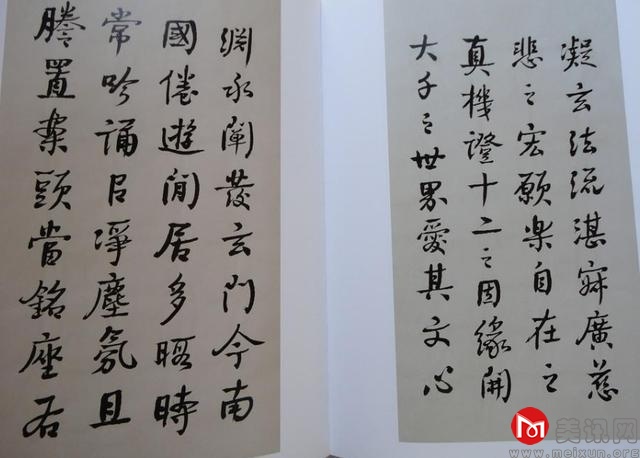 凝玄法流湛寂廣慈
悲之宏願樂自在之
真機證十二之因緣開
大千之世界愛其文心
渊永闡發玄門今南
國倦遊閒居多暇時
常吟誦㠯淨塵氛且
謄置案頭當銘座右
美讯网
www.meixun.org